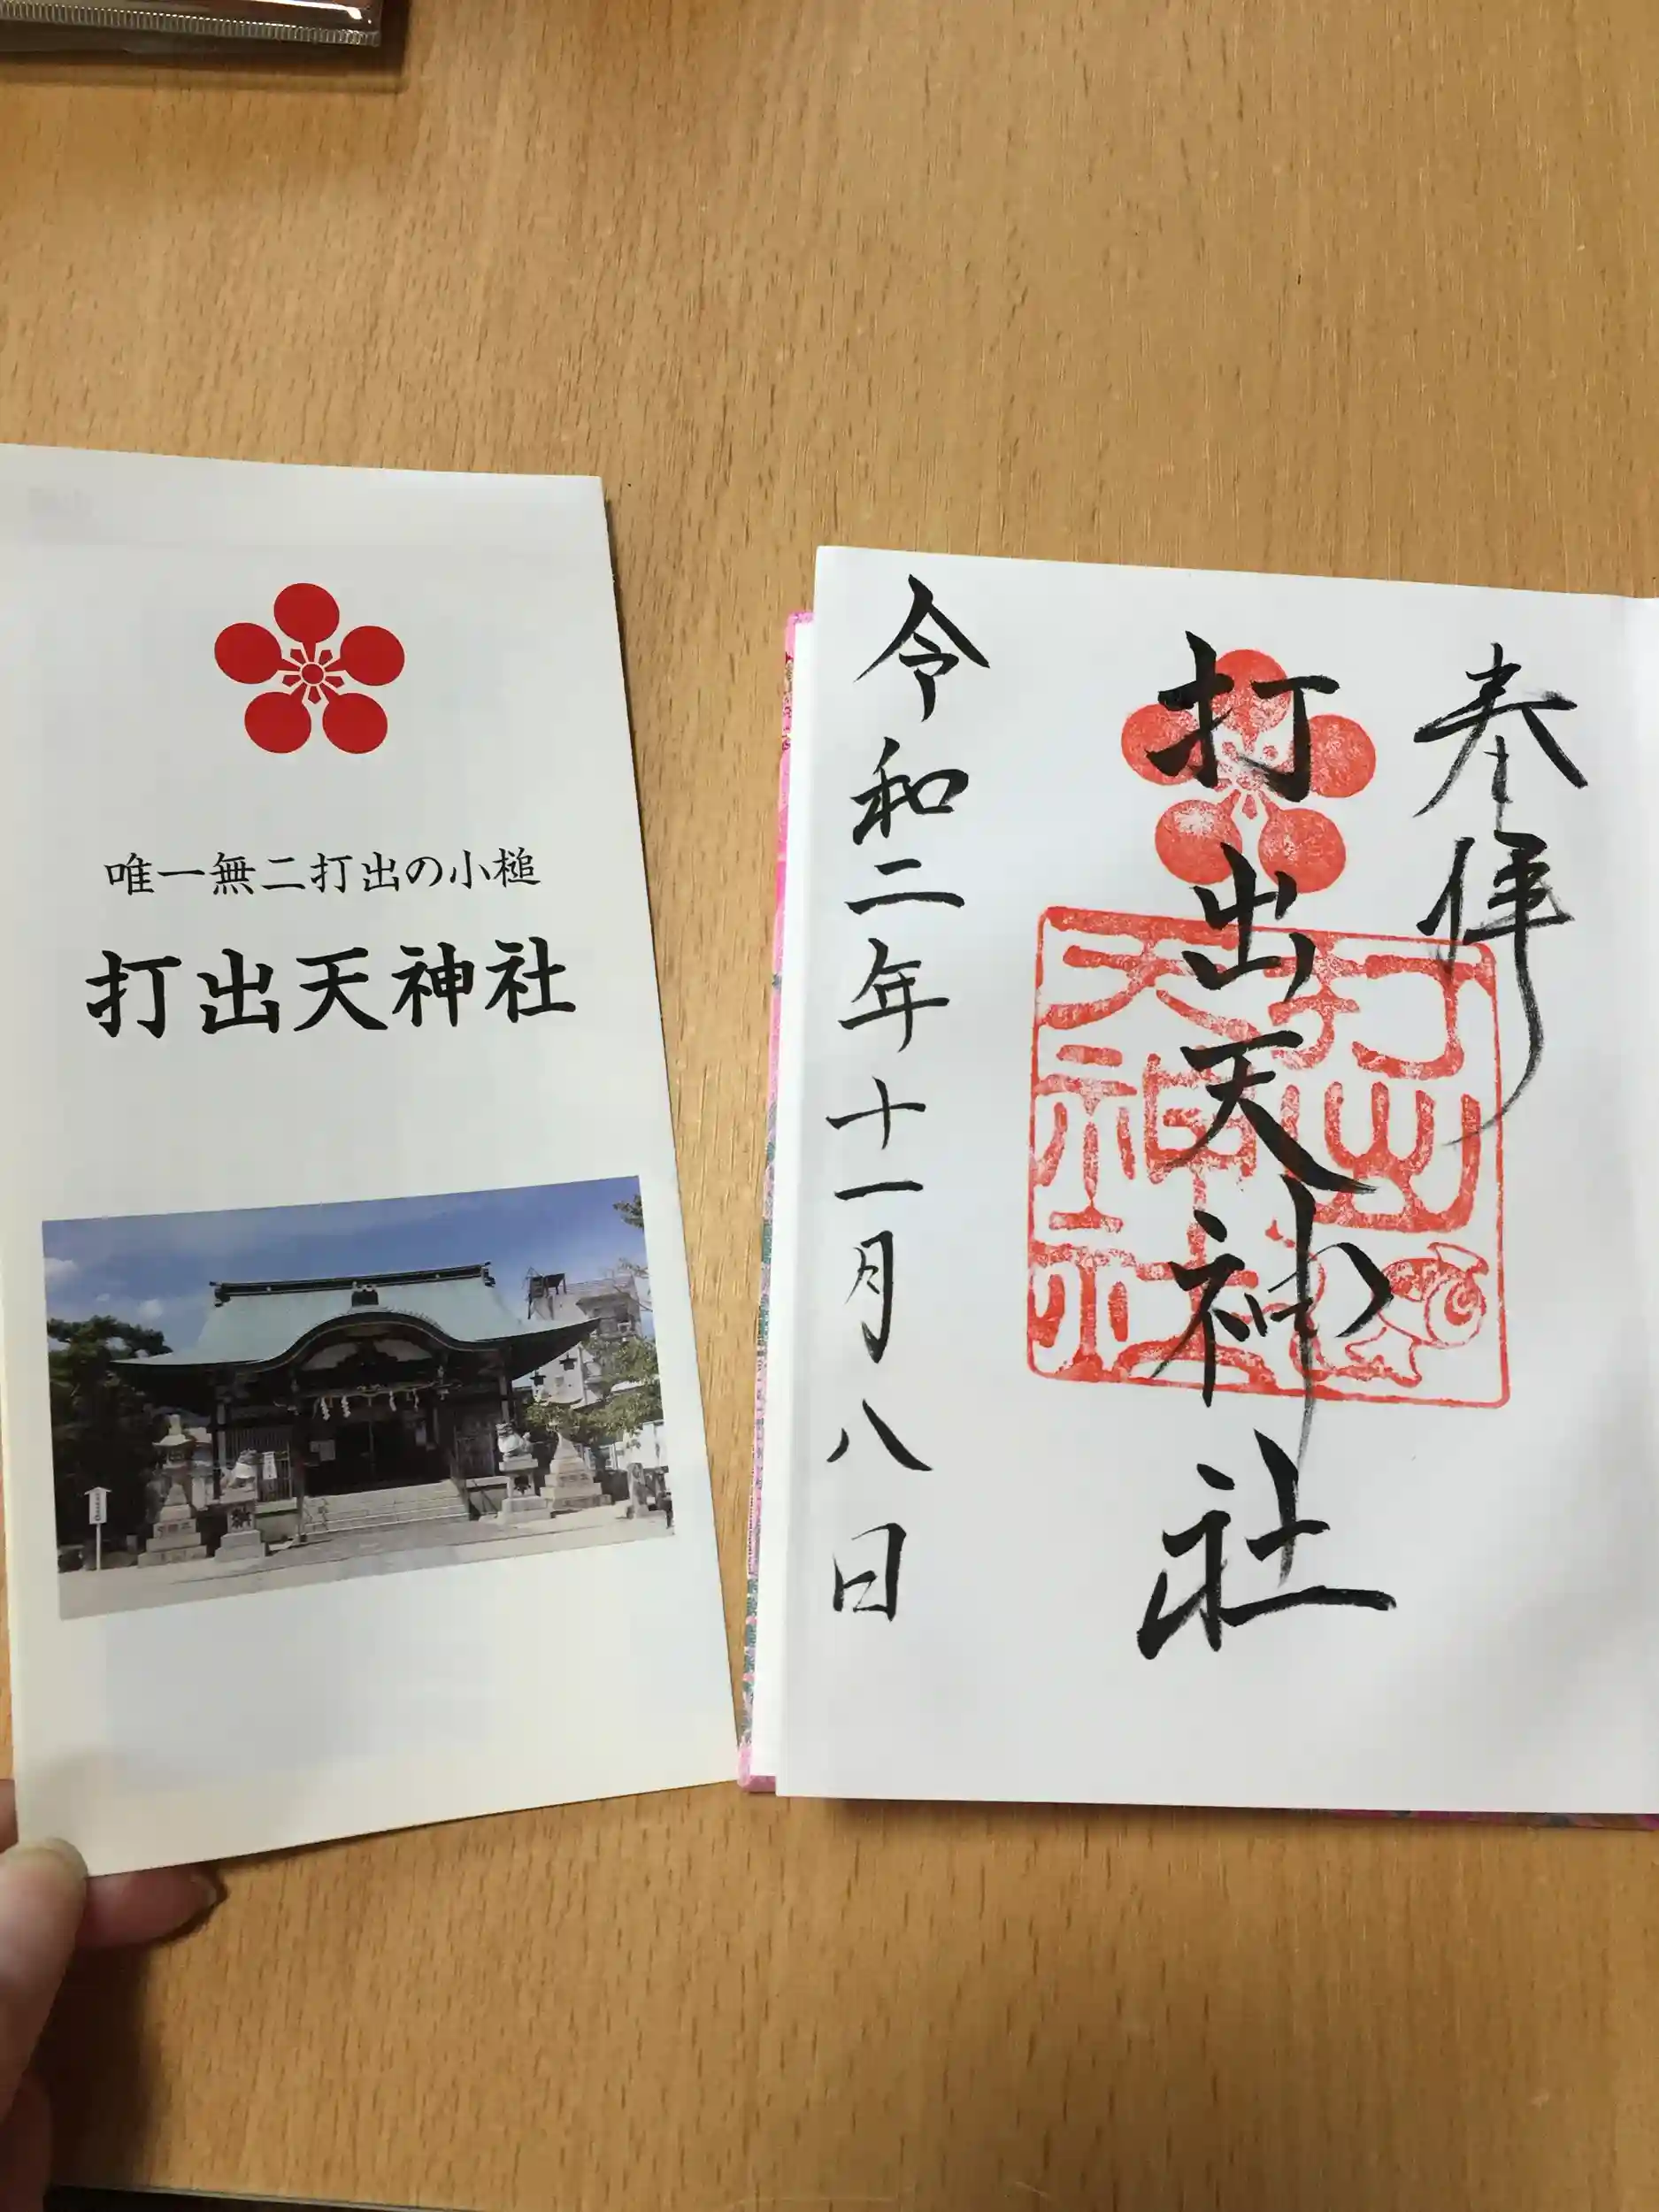 唯一無二打出の小槌
打出天神社
奉拝
打出天神社
打出
天神社
令和二年十一月八日